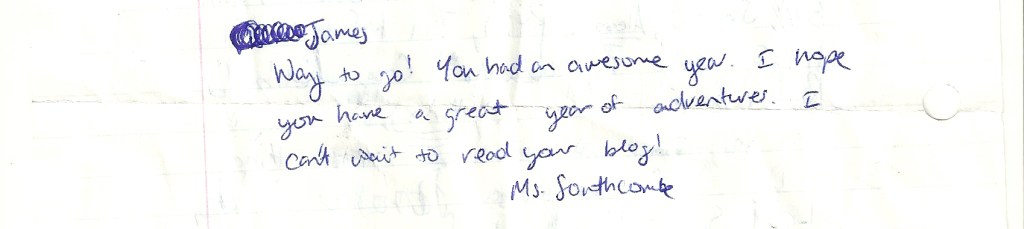 James
Way to go! You had an awesome year. I hope
you have a great year of adventures. I
can't wait to read your blog!
Ms. Southcombe